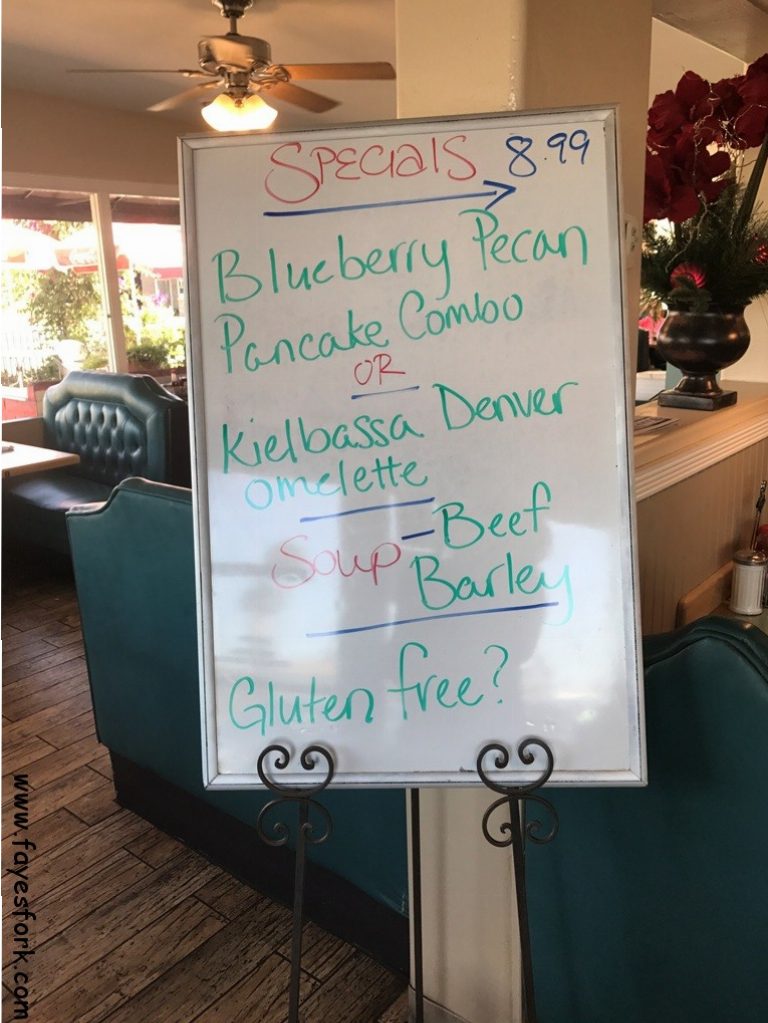 Specials 8.99
Blueberry Pecan
Pancake Combo
OR
Kielbassa Denver
omelette
Soup - Beef
Barley
Gluten free?
www.fayesfork.com